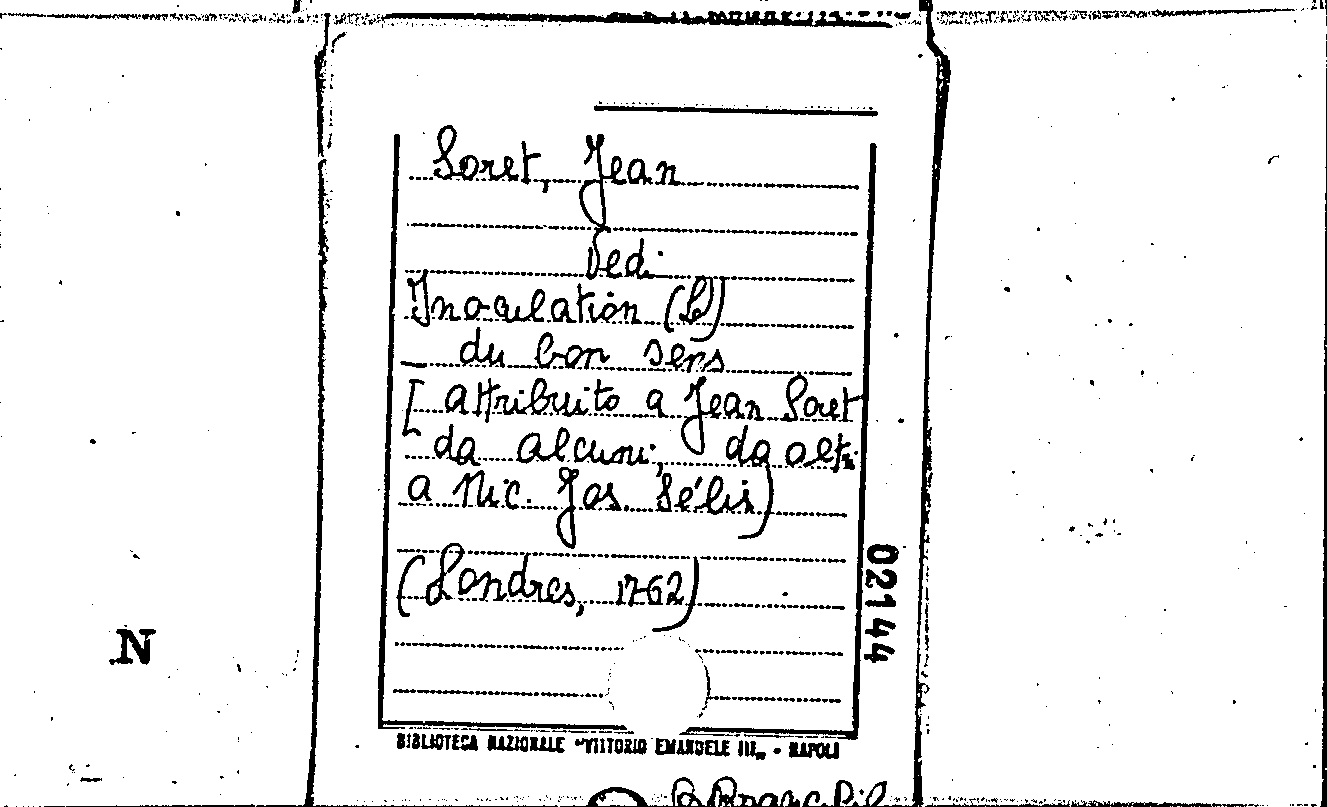 Soret, Jean
Vedi
Inoculation (L')
du bon sens
[attribuito a Jean Soret
da alcuni, da altri
a Nic. Jos. Sélis)
(Londres, 1762)
02144
N
BIBLIOTECA NAZIONALE "VITTORIO EMANUELE III„ - NAPOLI